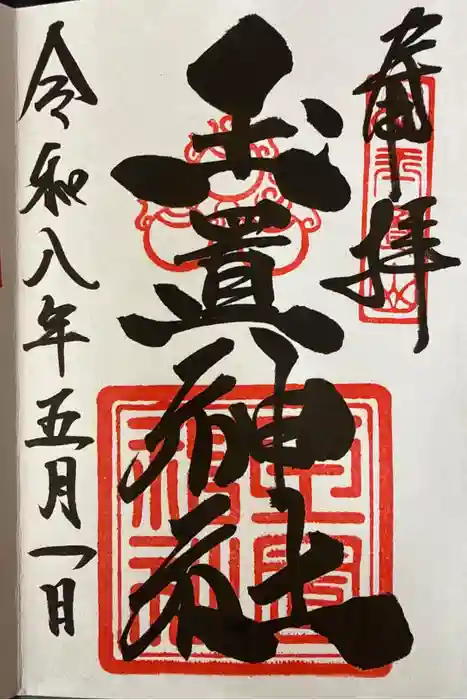 奉拝
玉置神社
令和八年五月一日